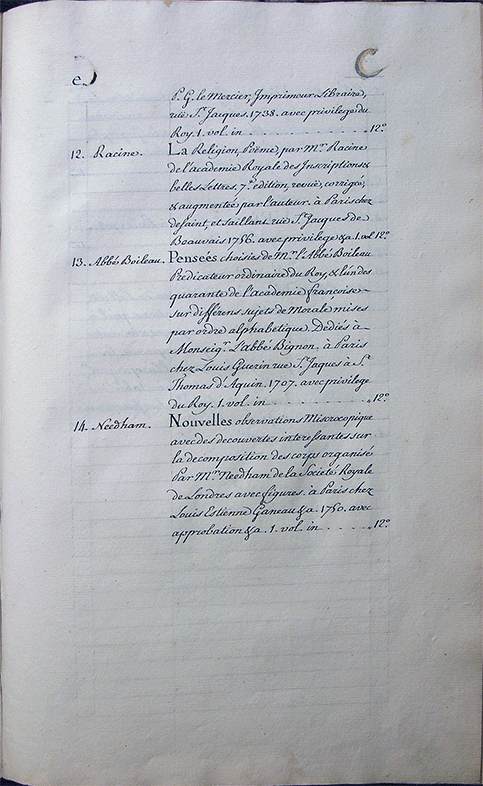 e C
P. G. le Mercier, Imprimeur Libraire,
rüe St. Jacques. 1738. avec privilege du
Roy. 1. vol. in . . . . . . . . . . . . 12°
12. Racine. La Religion, Poëme, par Mr. Racine
de l'academie Royale des Inscriptions &
belles Lettres. 7e. edition, revue, corrigée,
& augmentée par l'auteur. à Paris chez
desaint, et saillant. rue St. Jacques de
Beauvais 1756. avec privilege &a. 1. vol 12°
13. Abbé Boileau. Pensées choisies de Mr. l'Abbé Boileau
Predicateur ordinaire du Roy, & l'un des
quarante de l'academie françoise
sur différens sujets de Morale; mises
par ordre alphabetique. Dediés à
Monseigr. L'abbé Bignon. à Paris
chez Louis Guerin rue St. Jaques à St.
Thomas d'Aquin. 1707. avec privilege
du Roy. 1. vol. in . . . . . . . . . . 12°
14. Needham. Nouvelles observations Miscrocopique
avec des decouvertes interessantes sur
la decomposition des corps organisé
Par Mr. Needham de la Societé Royale
de Londres avec figures. à Paris chez
Louis Estienne Ganeau &a. 1750. avec
approbation &a. 1. vol. in . . . . . 12°